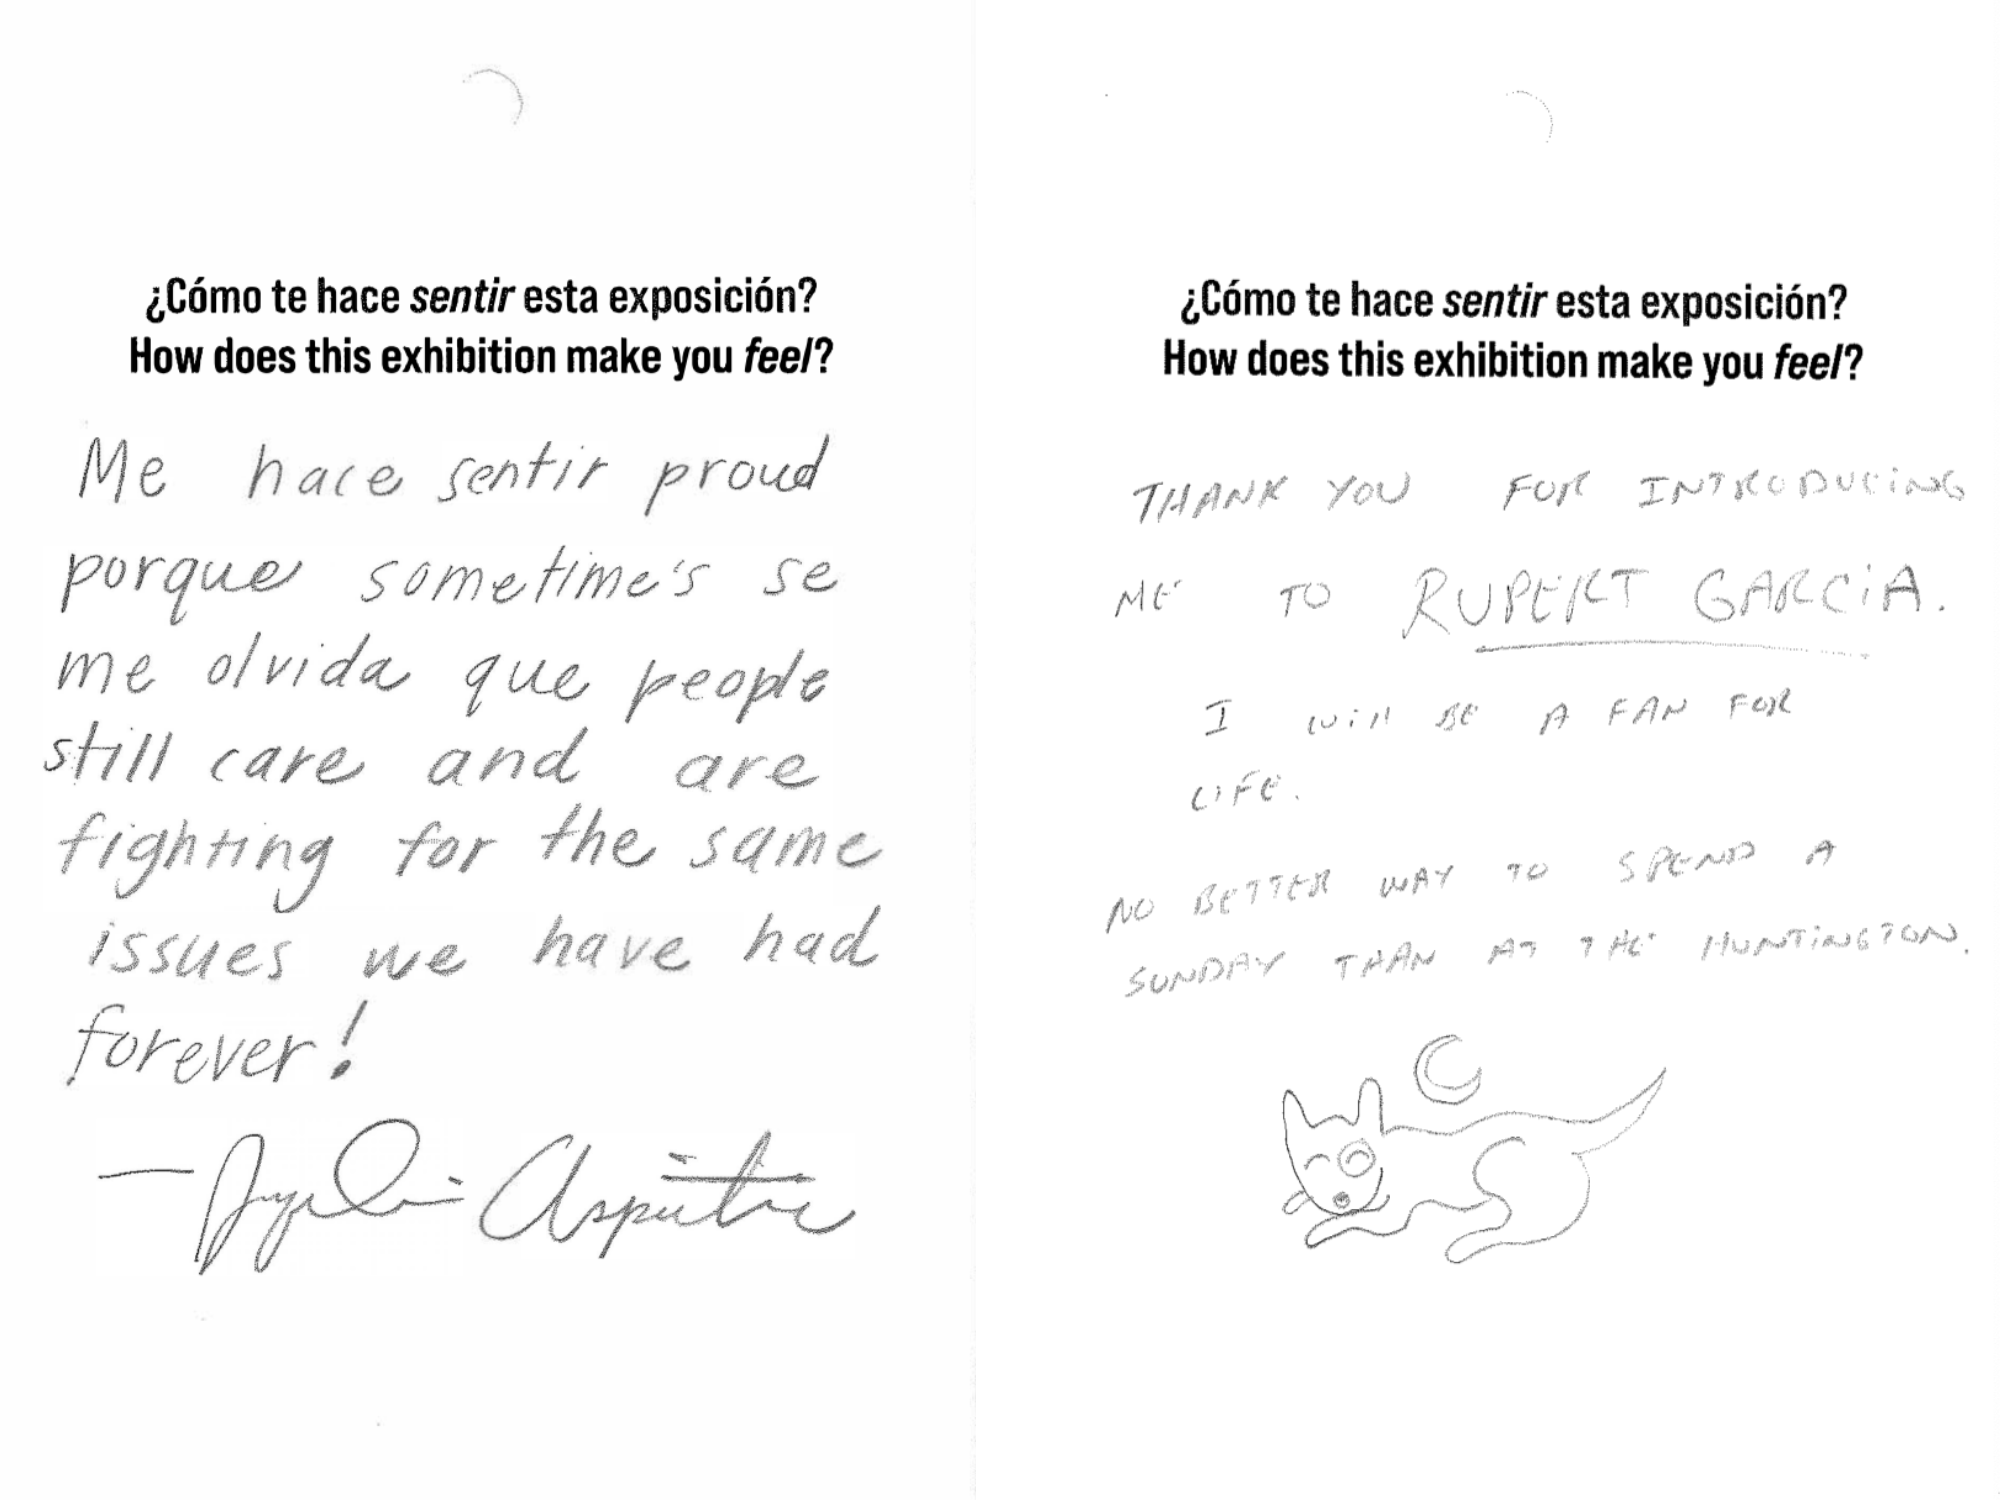 ¿Cómo te hace sentir esta exposición?
How does this exhibition make you feel?
Me hace sentir proud
porque sometime's se
me olvida que people
still care and are
fighting for the same
issues we have had
forever!
¿Cómo te hace sentir esta exposición?
How does this exhibition make you feel?
THANK YOU FOR INTRODUCING
ME TO RUPERT GARCIA.
I will BE A FAN FOR
LIFE.
NO BETTER WAY TO SPEND A
SUNDAY THAN AT THE HUNTINGTON.